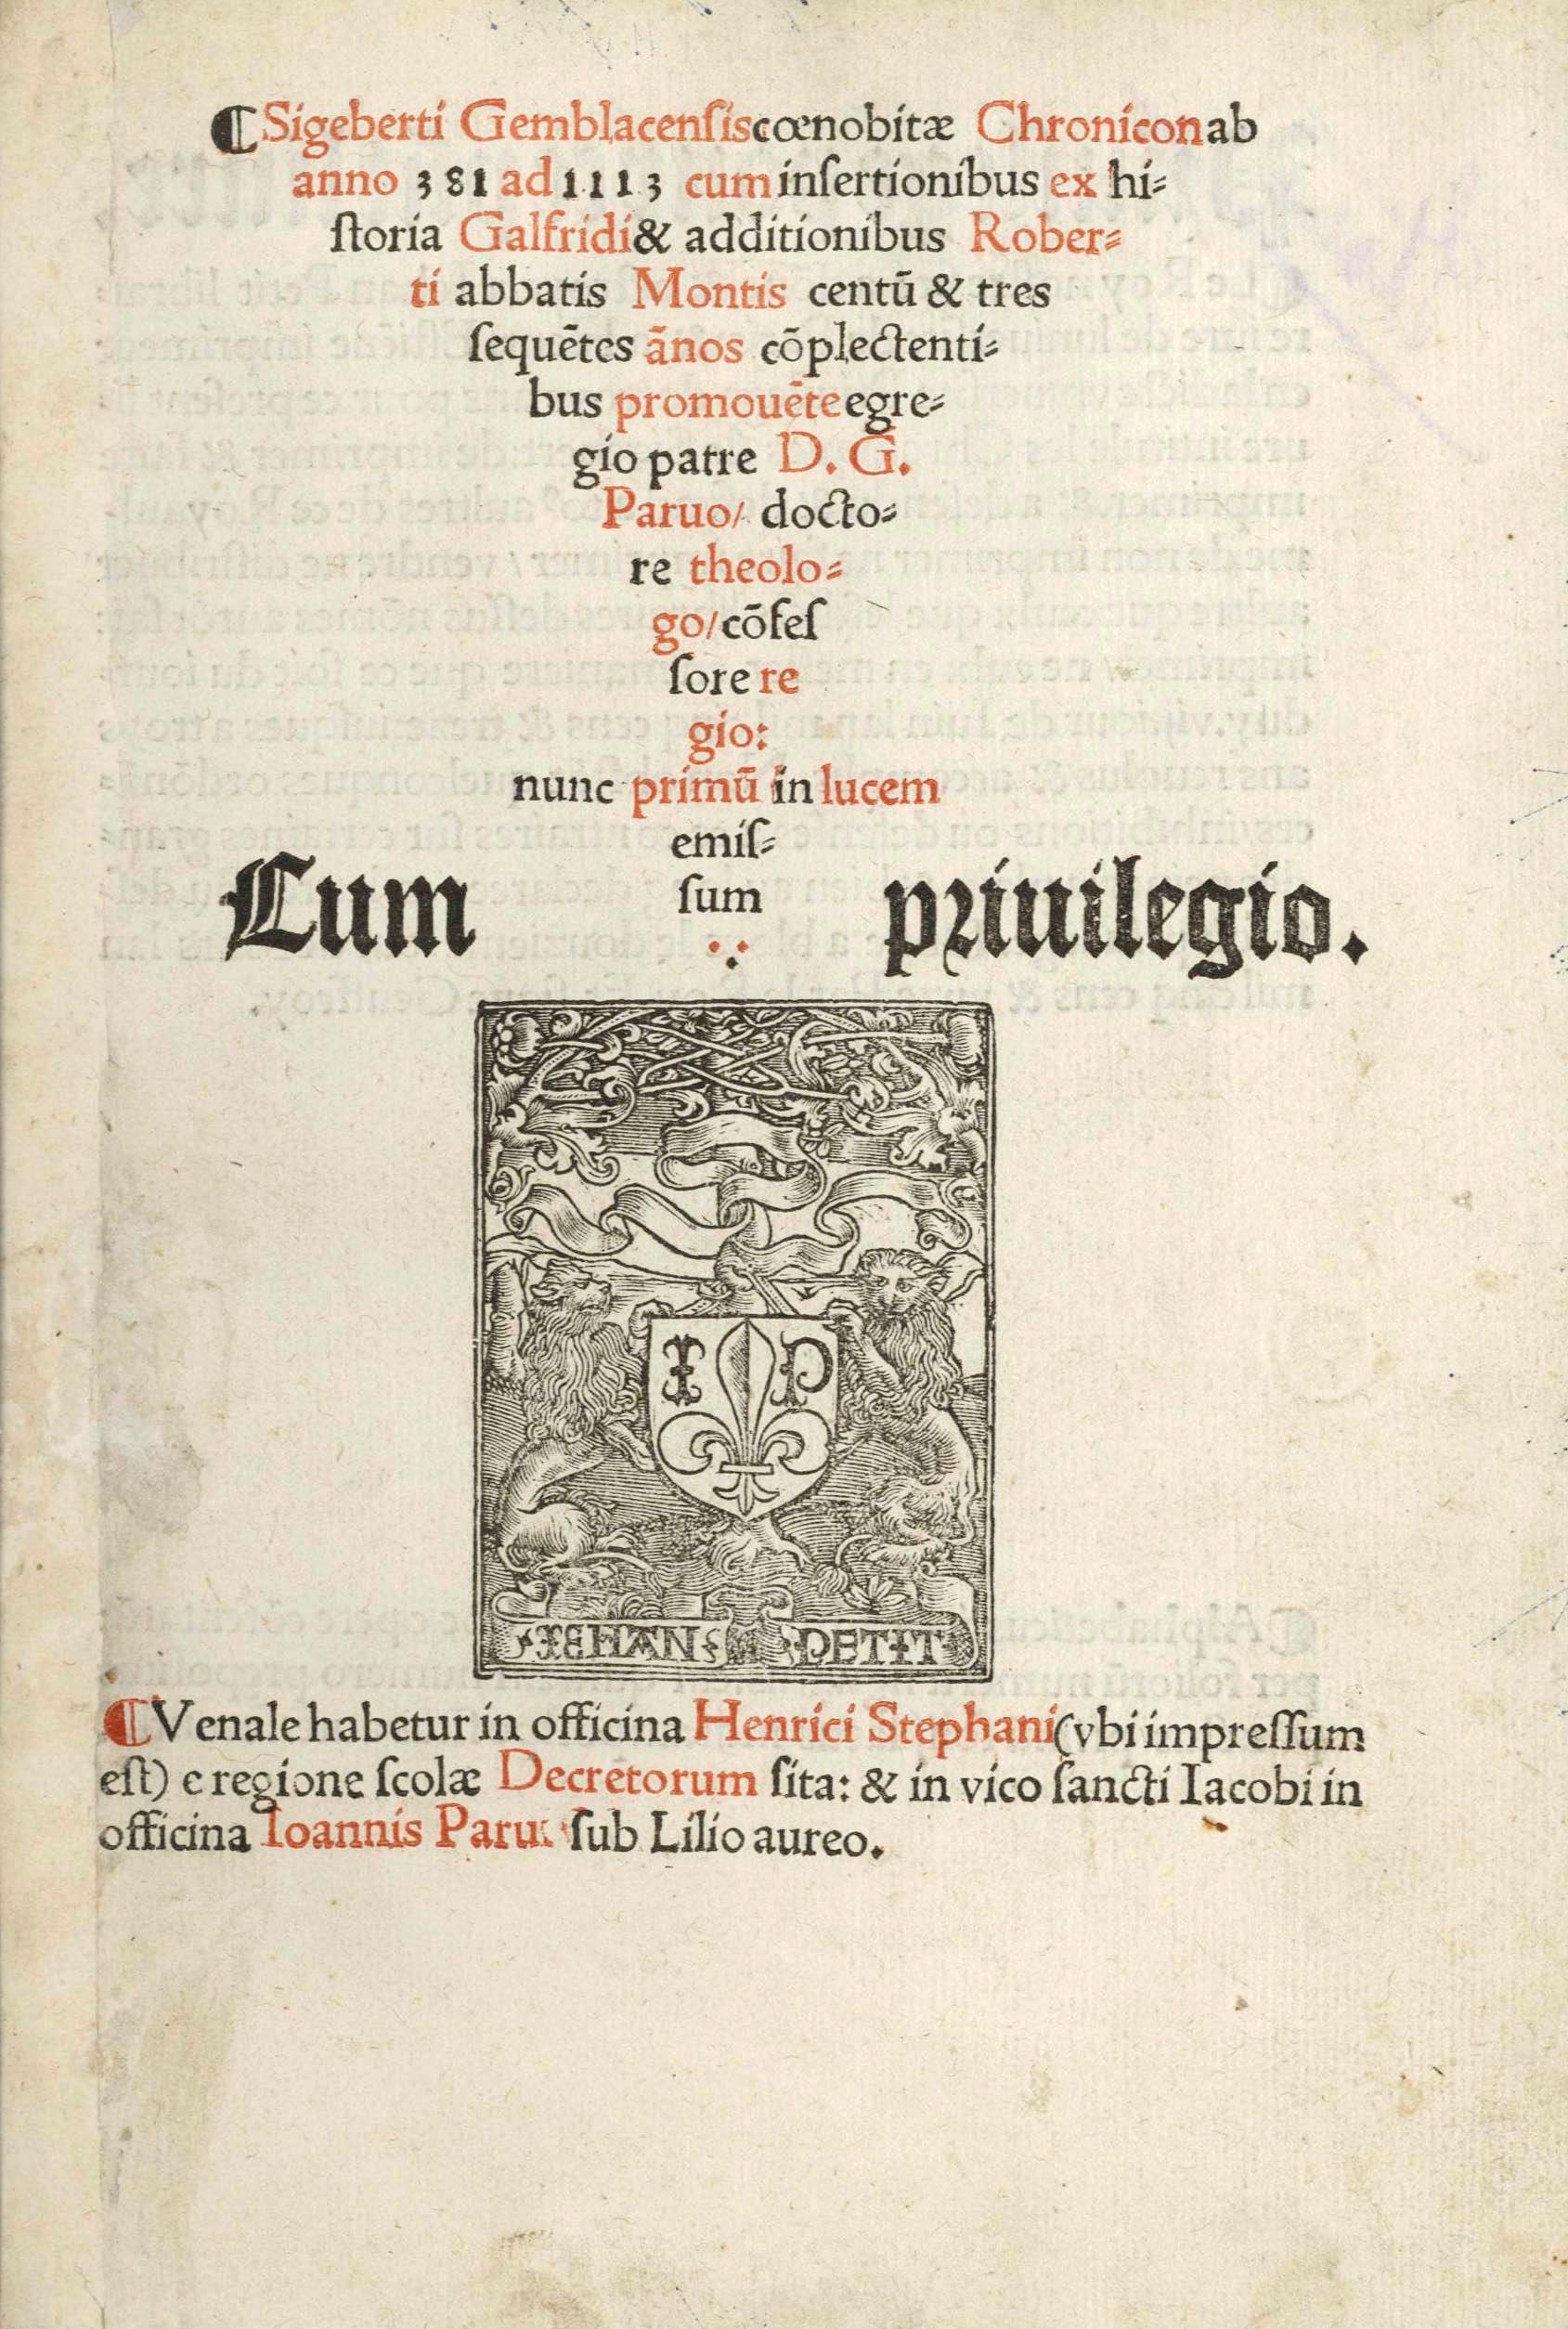 ¶Sigeberti Gemblacenſiscœnobitæ Chroniconab
anno 381 ad 1113 cum inſertionibus ex hi⸗
ſtoria Galfridi & additionibus Rober⸗
ti abbatis Montis centū & tres
ſequētes ānos cōplectenti⸗
bus promouēte egre⸗
gio patre D. G.
Paruo/ docto⸗
re theolo⸗
go/cōfeſ
ſore re
gio:
nunc primū in lucem
emiſ⸗
ſum
Cum priuilegio.
I P
IEHAN PETIT
¶Venale habetur in officina Henrici Stephani(vbi impreſſum
eſt) e regione ſcolæ Decretorum ſita: & in vico ſancti Iacobi in
officina Ioannis Parui ſub Lilio aureo.